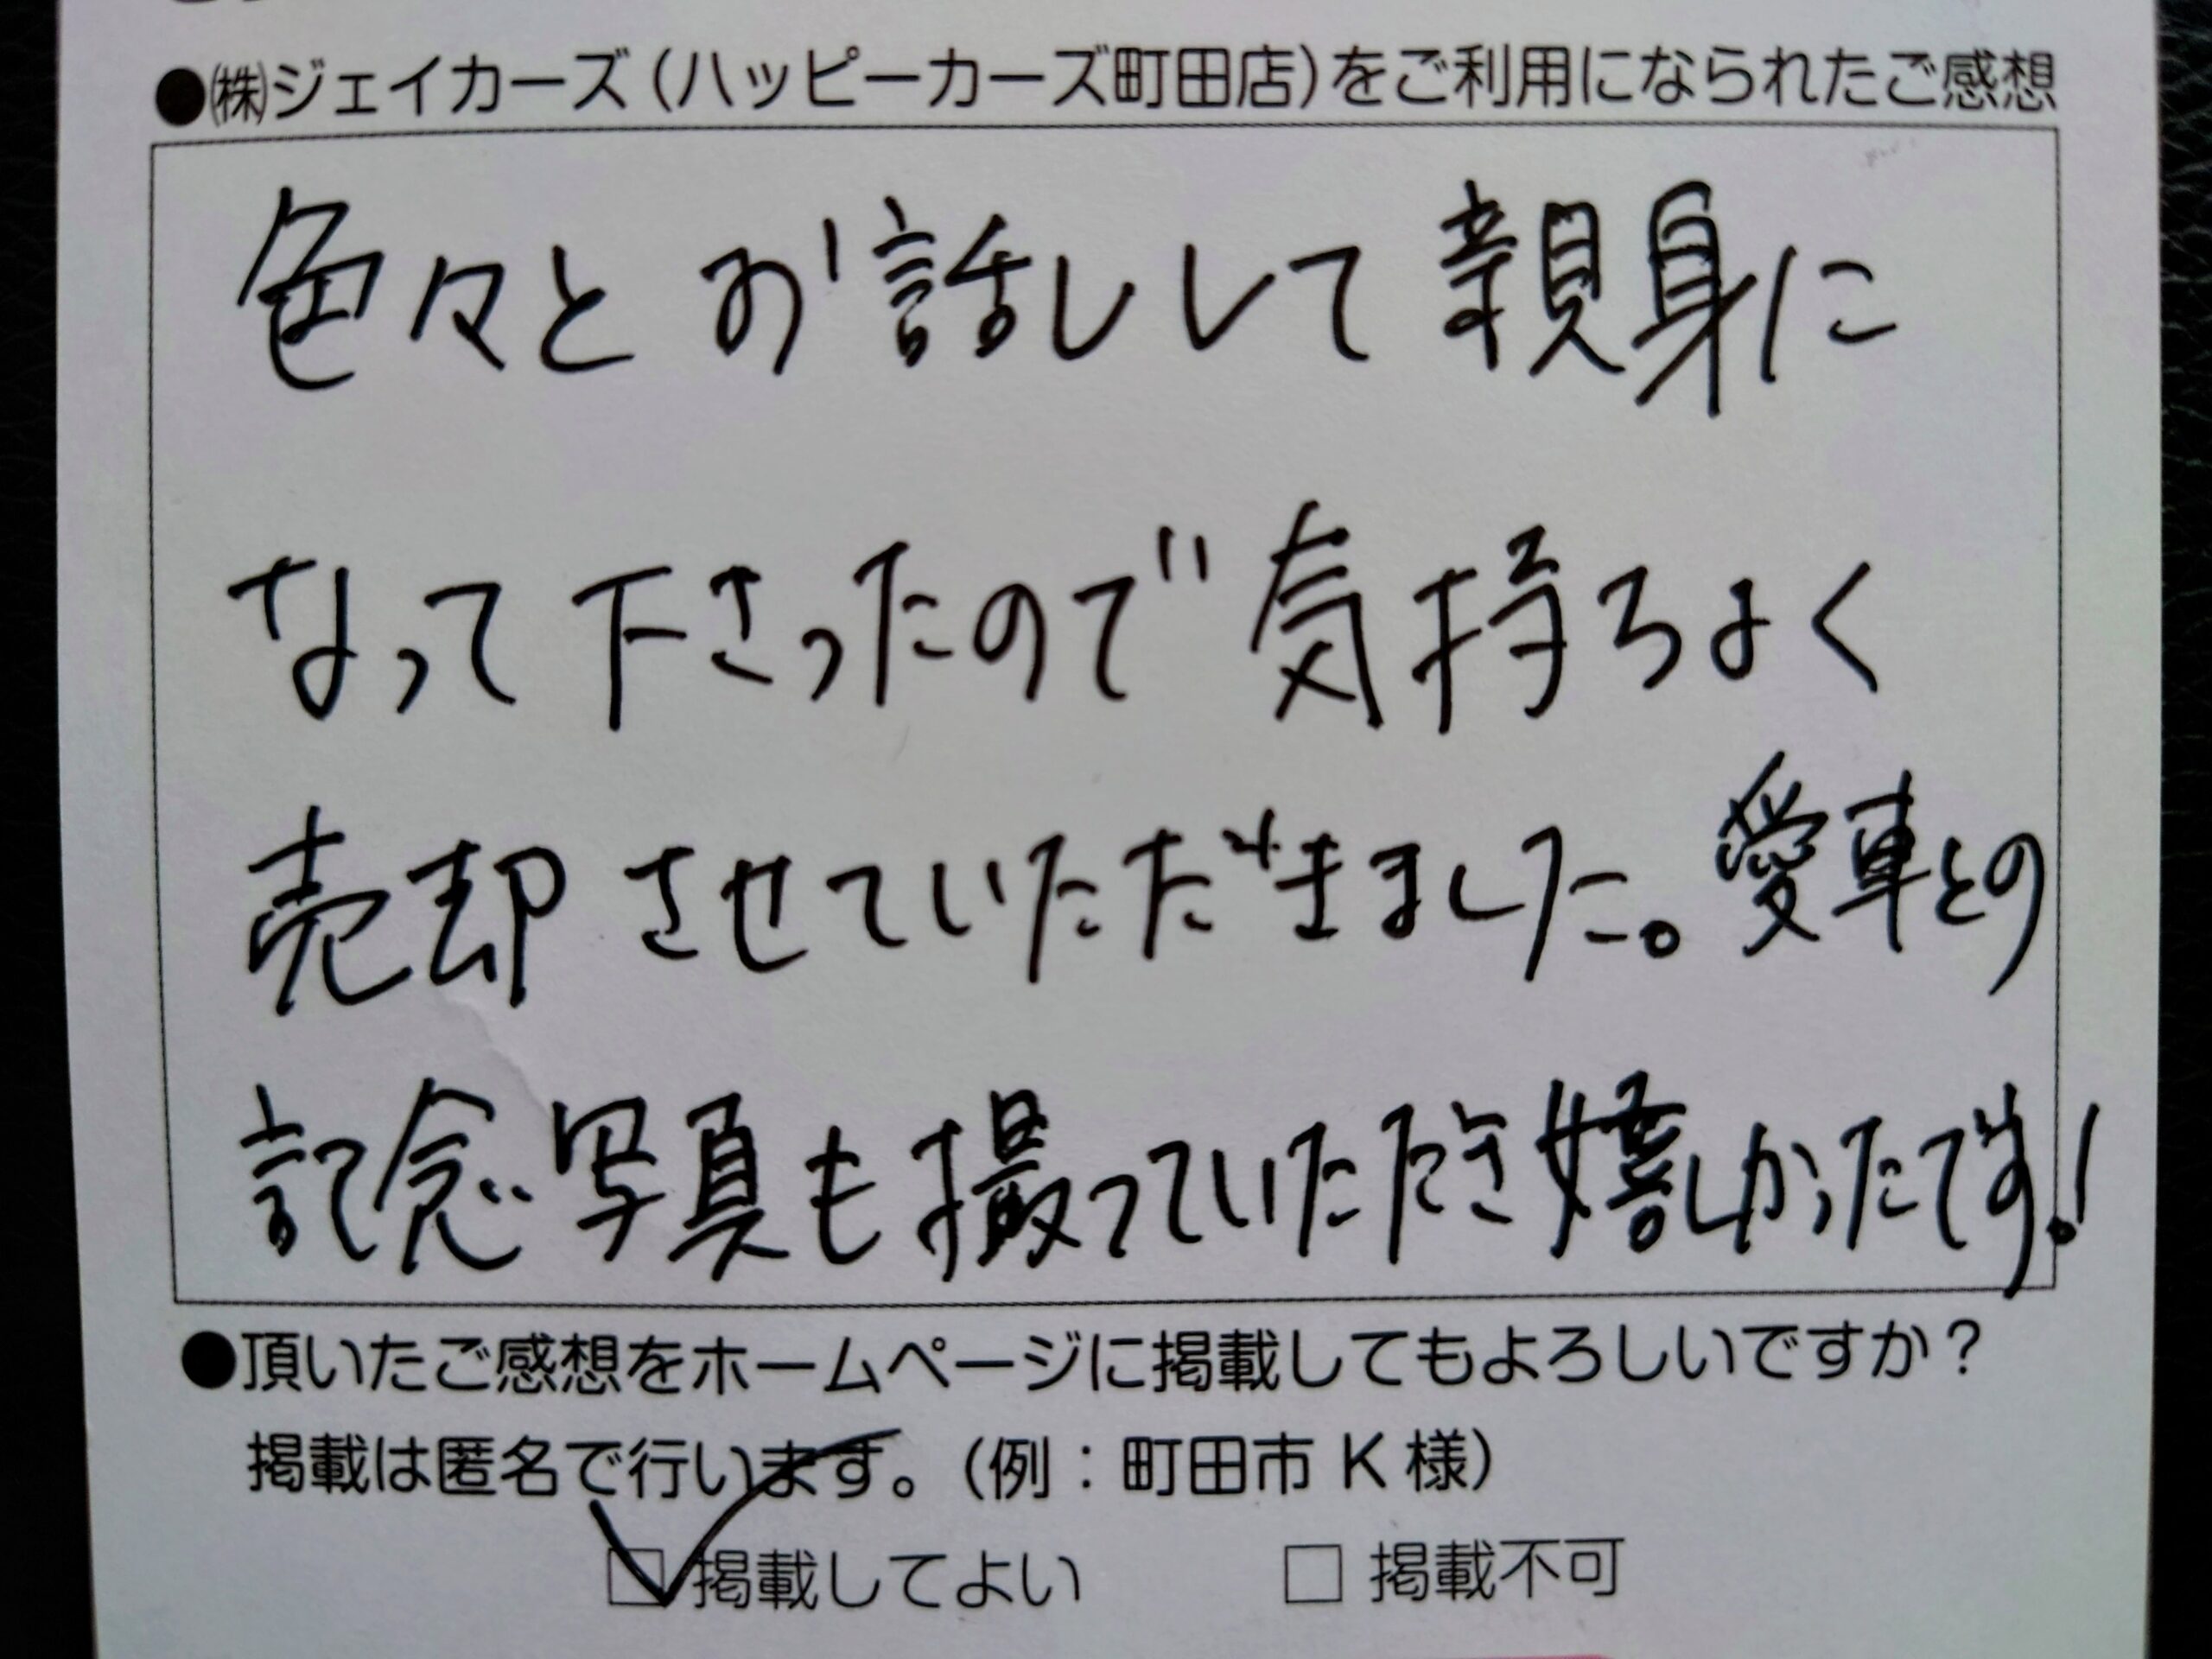 ●㈱ジェイカーズ（ハッピーカーズ町田店）をご利用になられたご感想
色々とお話しして親身に
なって下さったので気持ちよく
売却させていただきました。愛車との
記念写真も撮っていただき嬉しかったです。!
●頂いたご感想をホームページに掲載してもよろしいですか？
掲載は匿名で行います。（例：町田市 K 様）
☑掲載してよい □掲載不可